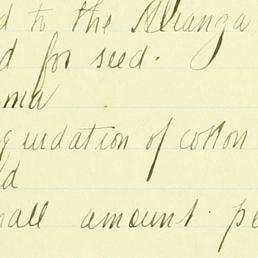 d to the Alianza
d for seed.
ma
g indation of cotton
ld
mall amount pe